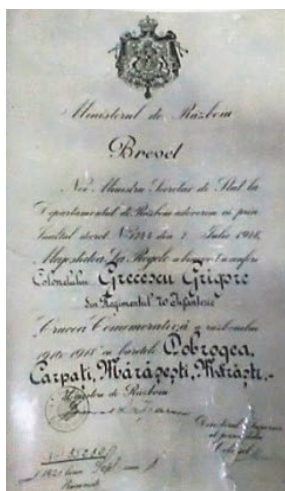 Ministerul de Războiu
Brevet
Noi Ministru Secretar de Stat la
Departamentul de Războiu adeverim că prin
Înaltul decret No. 1744 din 7. Iulie 1918,
Majestatea Sa Regele a binevoit a conferi
Colonelului Grecescu Grigore
din Regimentul 70 Infanterie
"Crucea Comemorativă a războiului
1916-1918" cu baretele Dobrogea,
Carpați, Mărășești, Mărăști.-
Ministru de Războiu
Directorul
al personalului
Colonel
1921 luna
București